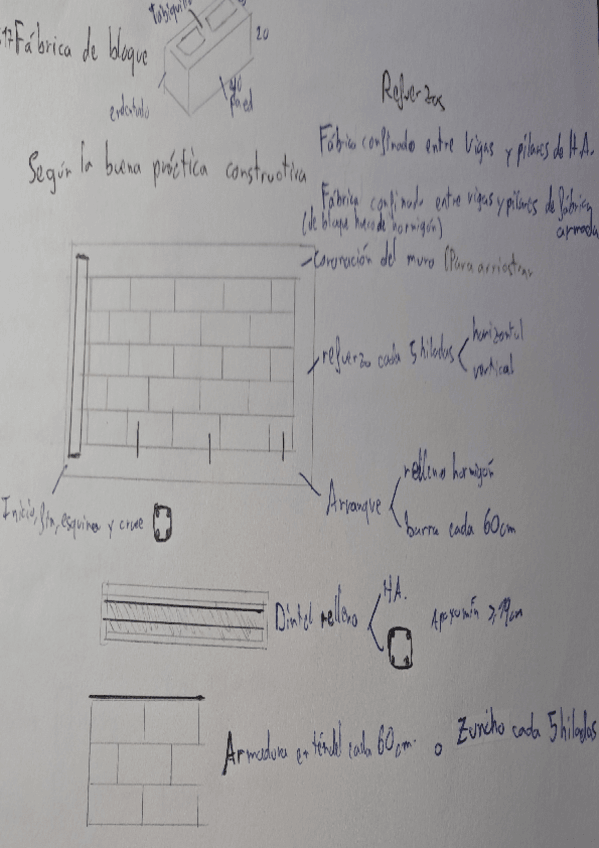 Fábrica de bloque
tabiquillo
20
40
pared
Según la buena práctica constructiva
Refuerzos
Fábrica confinada entre Vigas y pilares de H.A.
Fábrica confinada entre vigas y pilares de fábrica
(de bloque hueco de hormigón) armada
Coronación del muro (Para arriostrar
refuerzo cada 5 hiladas
horizontal
vertical
Inicio, fin, esquina y cruce
Arranque
relleno hormigón
barra cada 60cm
Dintel relleno
HA.
Apoyo mín ≥ 19cm
Armadura en tendel cada 60cm. o Zuncho cada 5 hiladas